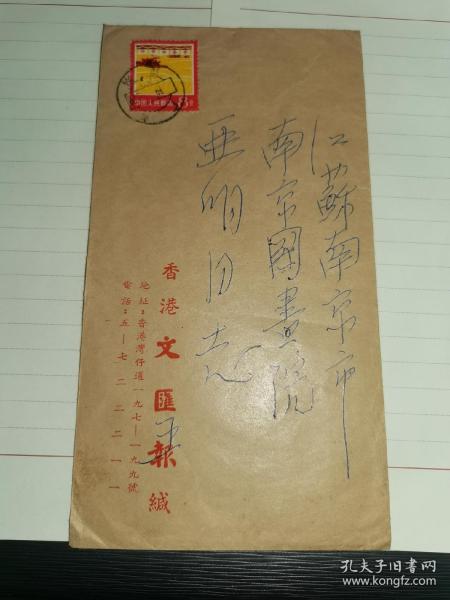 江蘇南京市
南京國畫院
亜明同志
香港文匯報緘
地址：香港灣仔道一九七—一九九號
電話：五—七二二二一一
中国人民邮政 8分
孔夫子旧书网
www.kongfz.com